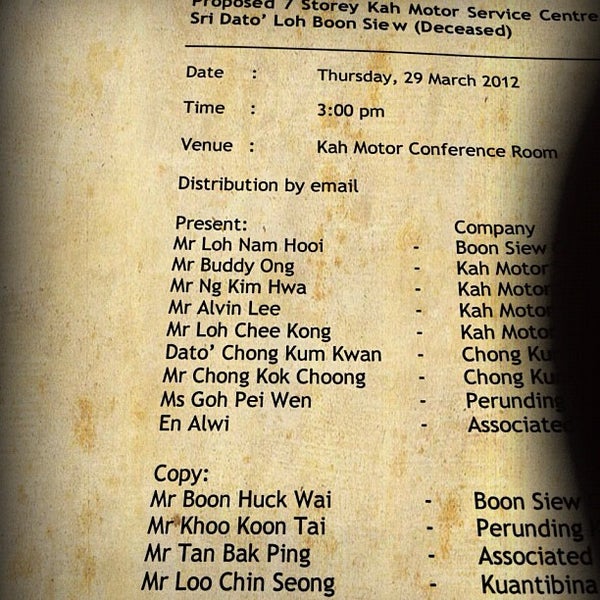 Proposed 7 Storey Kah Motor Service Centre
Sri Dato' Loh Boon Siew (Deceased)
Date : Thursday, 29 March 2012
Time : 3:00 pm
Venue : Kah Motor Conference Room
Distribution by email
Present: Company
Mr Loh Nam Hooi - Boon Siew
Mr Buddy Ong - Kah Motor
Mr Ng Kim Hwa - Kah Motor
Mr Alvin Lee - Kah Motor
Mr Loh Chee Kong - Kah Motor
Dato' Chong Kum Kwan - Chong Ku
Mr Chong Kok Choong - Chong Ku
Ms Goh Pei Wen - Perunding
En Alwi - Associated
Copy:
Mr Boon Huck Wai - Boon Siew
Mr Khoo Koon Tai - Perunding
Mr Tan Bak Ping - Associated
Mr Loo Chin Seong - Kuantibina